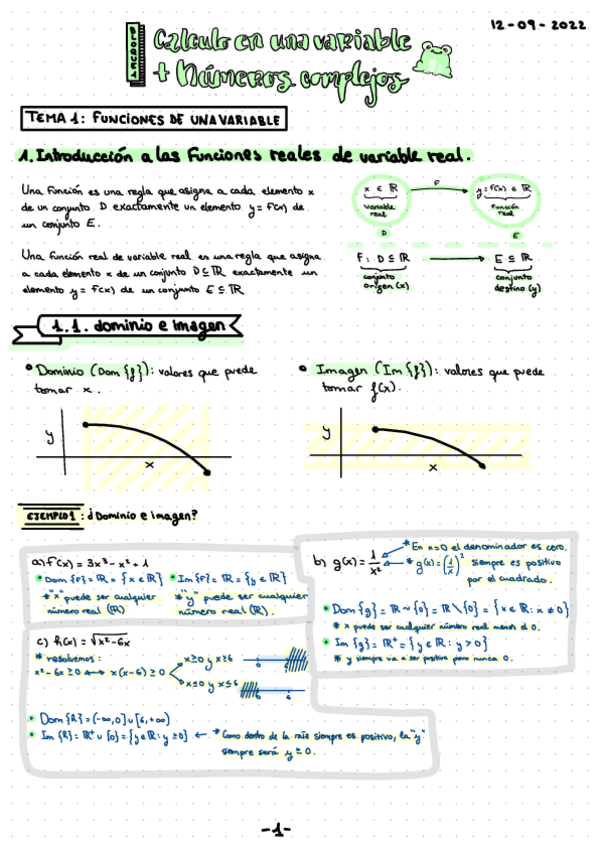 12-09-2022
BLOQUE 1
Cálculo en una variable
+ Números complejos
TEMA 1: FUNCIONES DE UNA VARIABLE
1. Introducción a las funciones reales de variable real.
Una función es una regla que asigna a cada elemento x
de un conjunto D exactamente un elemento y = f(x) de
un conjunto E.
x ∈ ℝ
F
y = f(x) ∈ ℝ
variable
real
Función
real
D
E
Una función real de variable real es una regla que asigna
a cada elemento x de un conjunto D ⊆ ℝ exactamente un
elemento y = f(x) de un conjunto E ⊆ ℝ
F: D ⊆ ℝ
E ⊆ ℝ
conjunto
origen (x)
conjunto
destino (y)
1.1. dominio e imagen
• Dominio (Dom {f}): valores que puede
tomar x.
• Imagen (Im {f}): valores que puede
tomar f(x).
y
x
y
x
EJEMPLO 1: ¿Dominio e imagen?
a) f(x) = 3x³ - x² + 1
• Dom {F} = ℝ = {x ∈ ℝ}
* "x" puede ser cualquier
número real (ℝ)
• Im {F} = ℝ = {y ∈ ℝ}
* "y" puede ser cualquier
número real (ℝ).
b) g(x) = 1/x²
* En x=0 el denominador es cero.
* g(x) = (1/x)² siempre es positivo
por el cuadrado.
• Dom {g} = ℝ ~ {0} = ℝ \ {0} = {x ∈ ℝ : x ≠ 0}
* x puede ser cualquier número real menos el 0.
• Im {g} = ℝ⁺ = {y ∈ ℝ : y > 0}
* y siempre va a ser positiva pero nunca 0.
c) h(x) = √x²-6x
* resolvemos:
x² - 6x ≥ 0 ↔ x(x-6) ≥ 0
x≥0 y x≥6
0 6
x≤0 y x≤6
0 6
• Dom {h} = (-∞, 0] ∪ [6, +∞)
• Im {h} = ℝ⁺ ∪ {0} = {y ∈ ℝ : y ≥ 0} ← * Como dentro de la raíz siempre es positivo, la "y"
siempre será y ≥ 0.
-1-